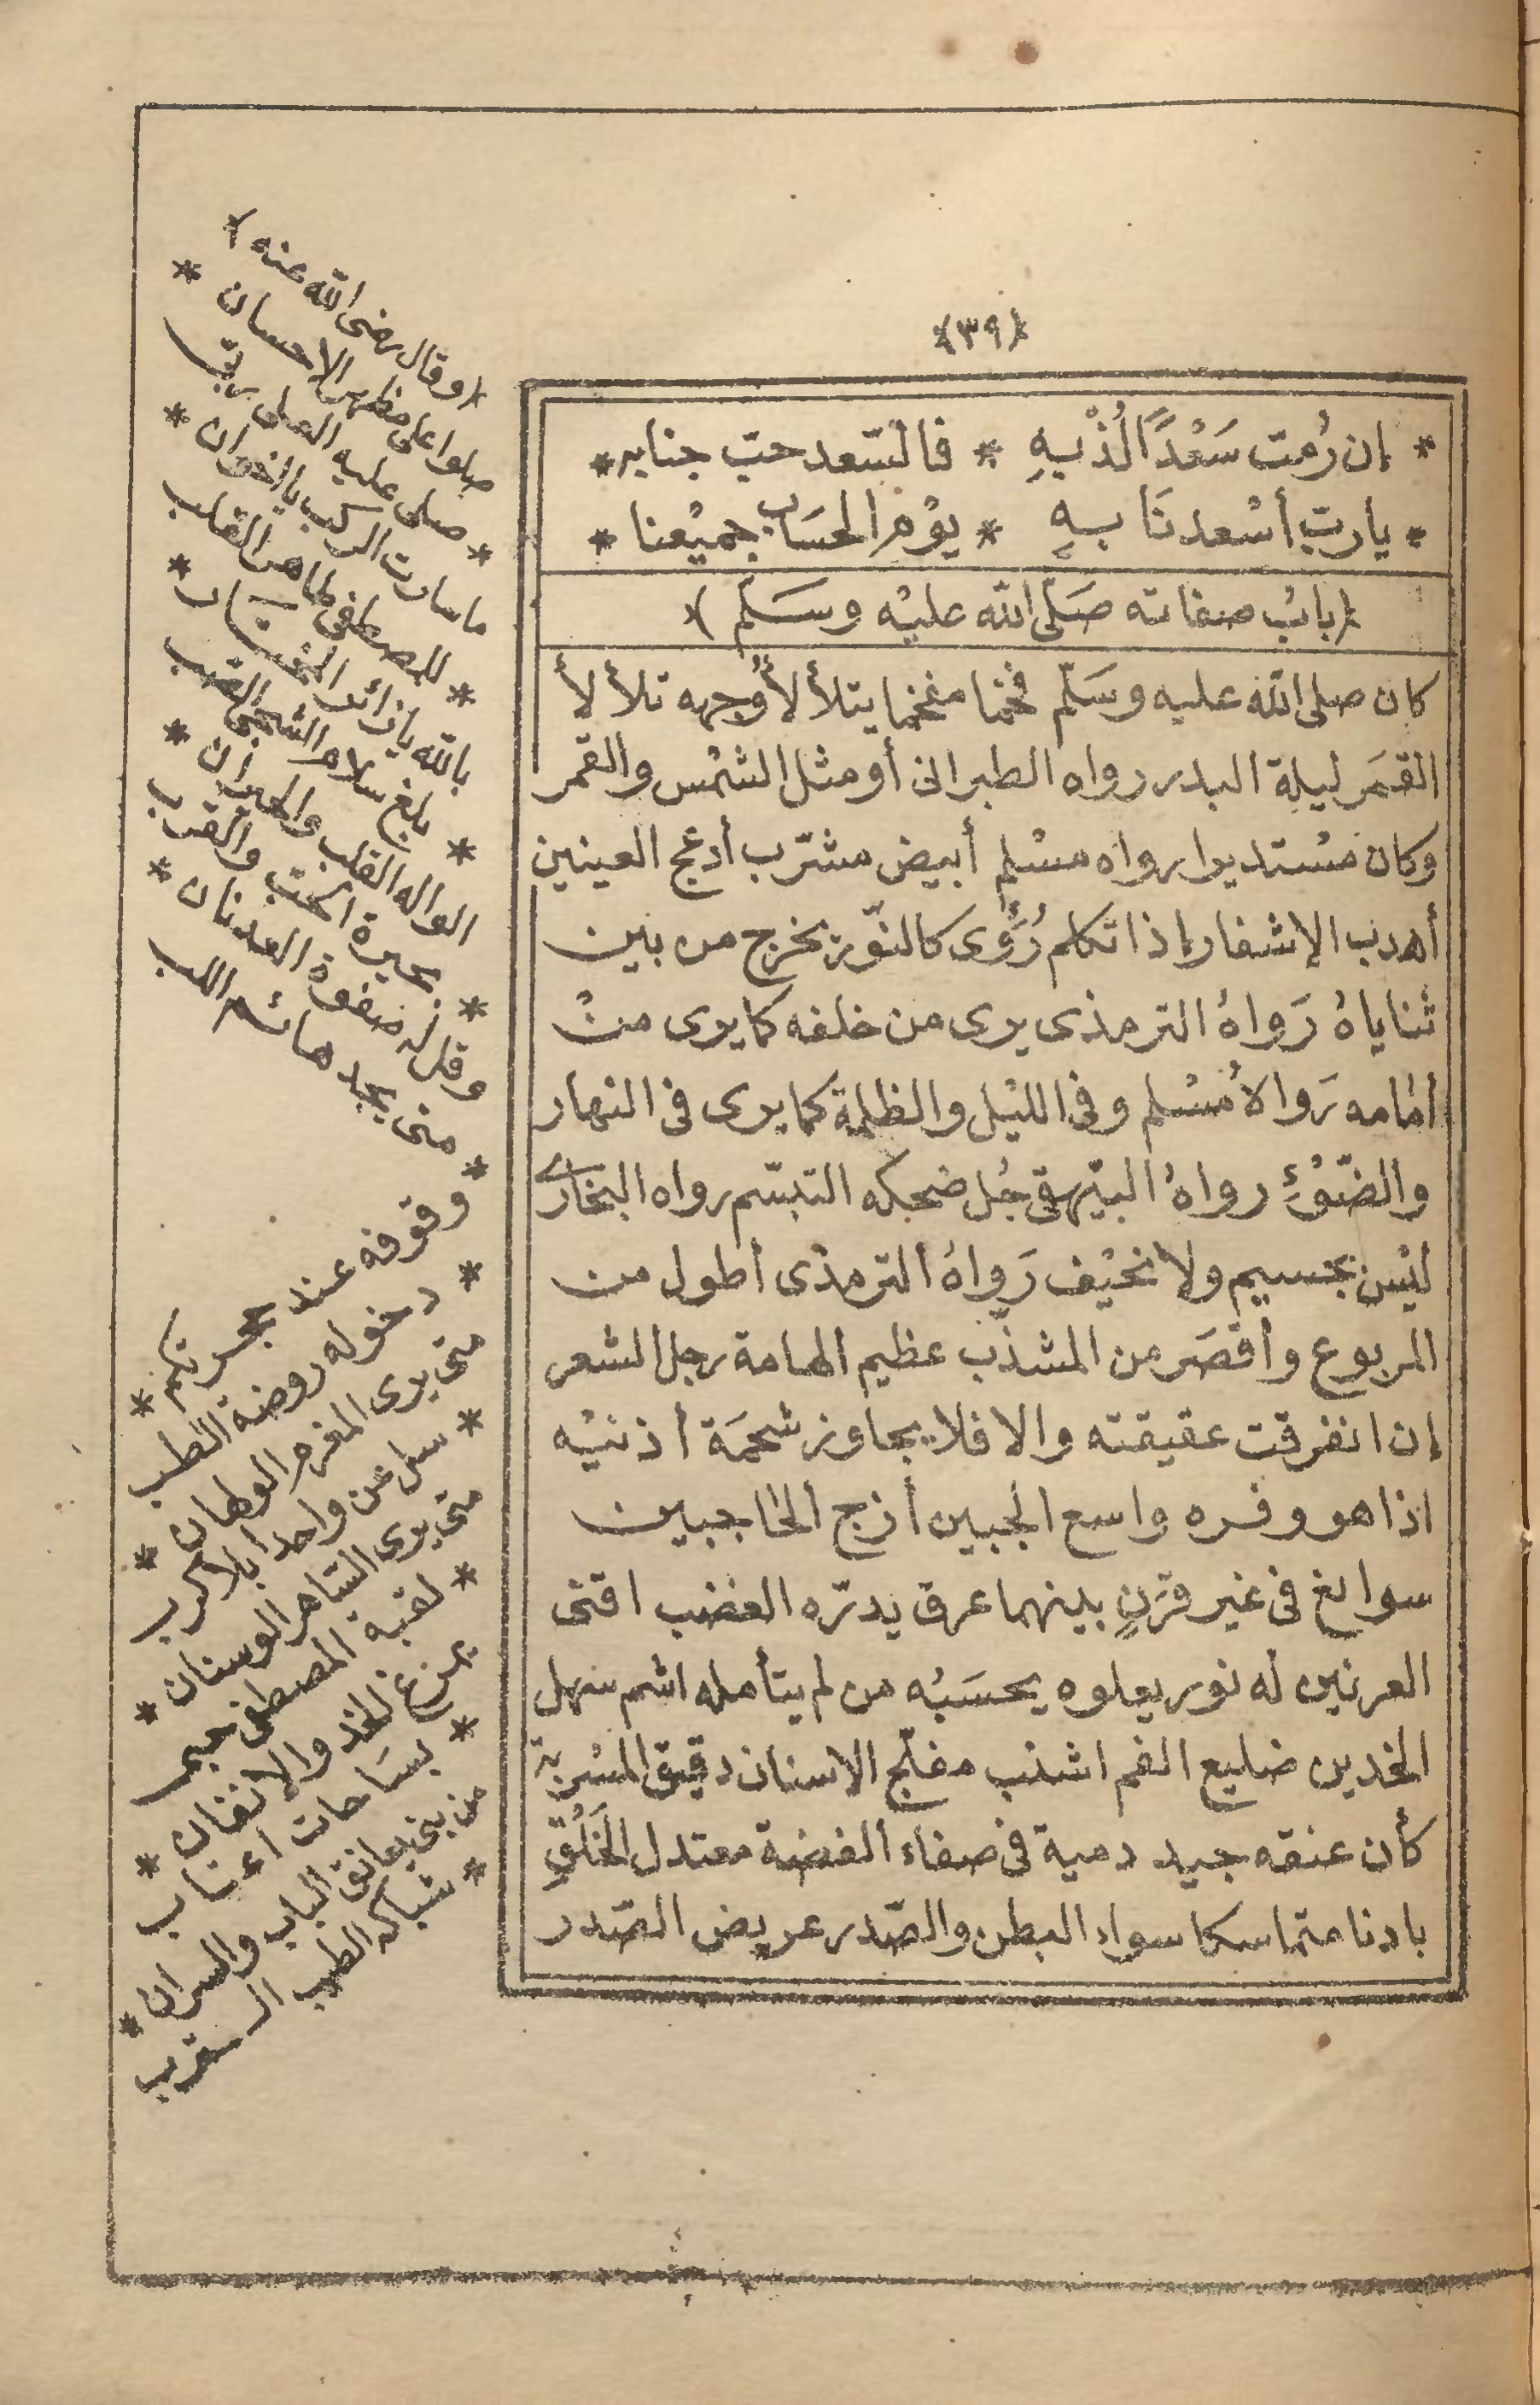 ﴿٣٩﴾
* إن رُمت سَعْدًا لُذْ بِهِ * فالسّعد حبّ جنابه *
* يا ربّ أسْعدنَا بهِ * يوْم الحسَاب جميْعنا *
(بابُ صفاته صَلّى الله عليْه وسَلّم)
كان صلى الله عليه وسَلّم فخما مفخما يتلألأ وجهه تلألأ
القمَر ليلة البدر رواه الطبرانى أو مثل الشمْس والقمر
وكان مسْتديرا رواه مسْلم أبيض مشرّب أدعج العينين
أهدب الإشفار إذا تكلم رُؤى كالنّور يخرج من بين
ثناياهُ رَواهُ الترمذى يرى من خلفه كما يرى منْ
أمامه رَواهُ مُسْلم وفى الليْل والظلمة كما يرى فى النهار
والضّوْءِ رواهُ البيْهقى جُل ضحكه التبسّم رواه البخارى
ليْس بجسيم ولا نحيْف رَواهُ الترمذى أطول من
المربوع وأقصَر من المشذّب عظيم الهامة رجل الشعر
إن انفرقت عقيقته والا فلا يجاوز شحمَة أذنيْه
اذا هو وفره واسع الجبين أزج الحاجبين
سوابغ فى غير قرَنٍ بينهما عرق يدرّه الغضب اقنى
العرنين له نور يعلوه يحسَبُه من لم يتأمله اشم سهل
الخدين ضليع الفم اشنب مفلّج الاسنان دقيق المسْربة
كأن عنقه جيد دمية فى صفاء الفضة معتدل الخَلْقِ
بادنا متماسكا سواء البطن والصّدر عريض الصّدر
(وقال رضى الله عنه)
صلوا على مظهر الاحسان *
* صلى عليه العلى ربّى
ما سارت الركب يا اخوان *
* للمصطفى طاهر القلب
بالله يا زائر
* بلغ سلام الشجى
الواله القلب والحيران *
* بحيرة الحبّ والقرب
وقل له صفوة العدنان *
* متى يجد هائم اللب
وقوفه عند حجرتكم *
* دخوله روضة الطب
متى يرى المغرم الولهان *
* سل عن واحد بلا كرب
متى يرى الساهر الوسنان *
* لقبة المصطفى
يمرغ الخد والاذقان *
* بساحات اعتاب
من بنى يعانق الباب والسران *
* شباكه الطيب